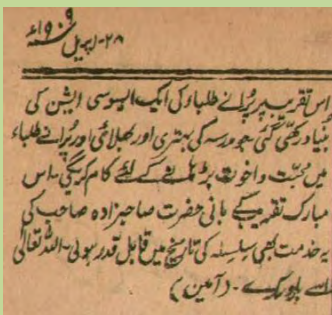 ۲۸-اپریل ۱۹۰۹ء
اس تقریب پر پُرانے طلباء کی ایک ایسوسی ایشن کی
بُنیاد رکھی گئی جو مدرسہ کی بہتری اور بھلائی اور پُرانے طلباء
میں محبّت و اخوت بڑھانے کے لئے کام کریگی۔ اس
مبارک تقریب کے بانی حضرت صاحبزادہ صاحب کی
یہ خدمت بھی سلسلہ کی تاریخ میں قابل قدر ہوگی۔ اللہ تعالیٰ
اسے بابرکت کرے۔ (آمین)